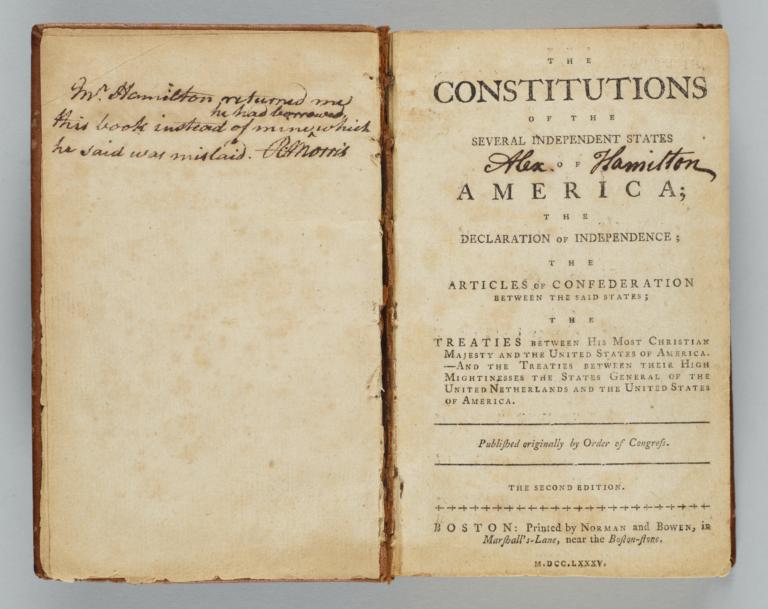 Mr Hamilton returned me
he had borrowed
this book instead of mine ^ which
he said was mislaid. RMorris
THE
CONSTITUTIONS
OF THE
SEVERAL INDEPENDENT STATES
Alex. OF Hamilton
AMERICA;
THE
DECLARATION OF INDEPENDENCE;
THE
ARTICLES OF CONFEDERATION
BETWEEN THE SAID STATES;
THE
TREATIES BETWEEN HIS MOST CHRISTIAN
MAJESTY AND THE UNITED STATES OF AMERICA.
—AND THE TREATIES BETWEEN THEIR HIGH
MIGHTINESSES THE STATES GENERAL OF THE
UNITED NETHERLANDS AND THE UNITED STATES
OF AMERICA.
Publiſhed originally by Order of Congreſs.
THE SECOND EDITION.
BOSTON: Printed by NORMAN and BOWEN, in
Marſhall's-Lane, near the Boſton-ſtone.
M.DCC.LXXXV.